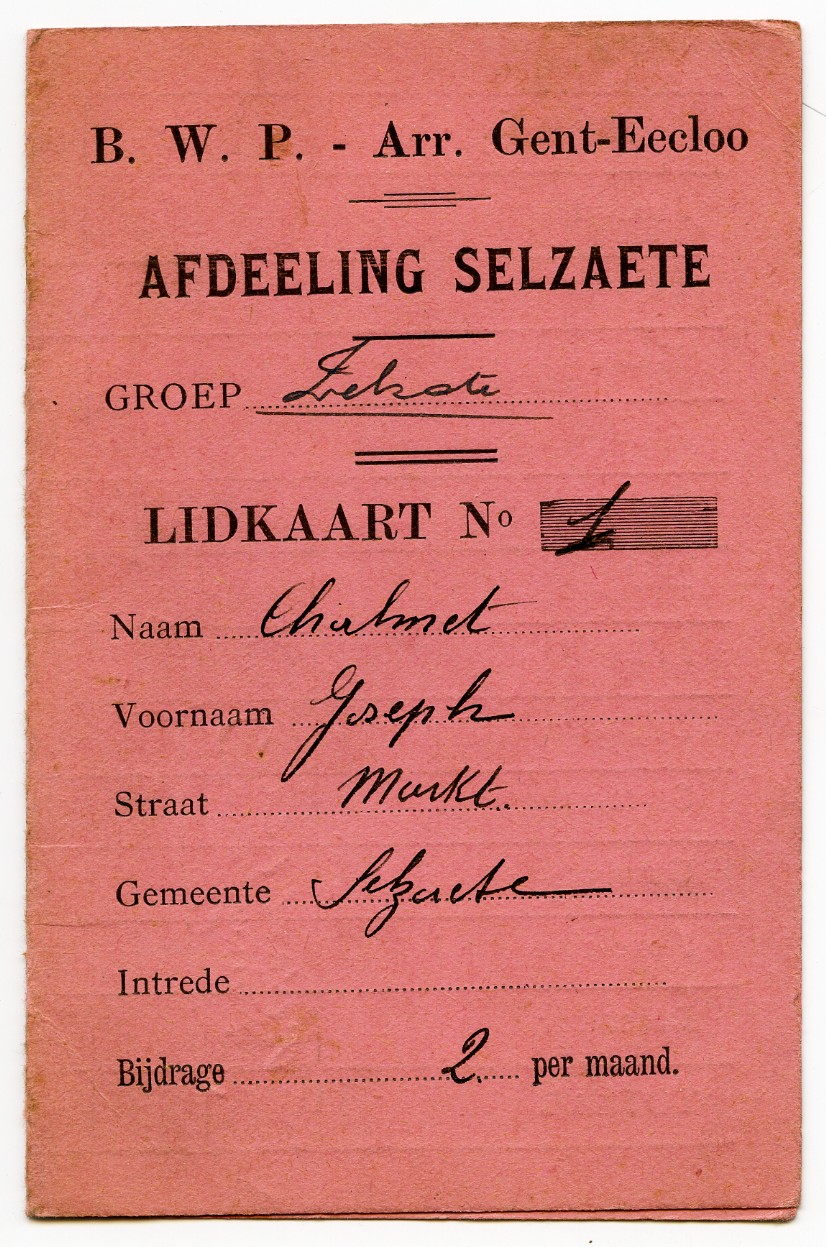 B. W. P. - Arr. Gent-Eecloo
AFDEELING SELZAETE
GROEP
LIDKAART Nº 1
Naam Chalmet
Voornaam Joseph
Straat Markt.
Gemeente Selzaete
Intrede
Bijdrage 2. per maand.